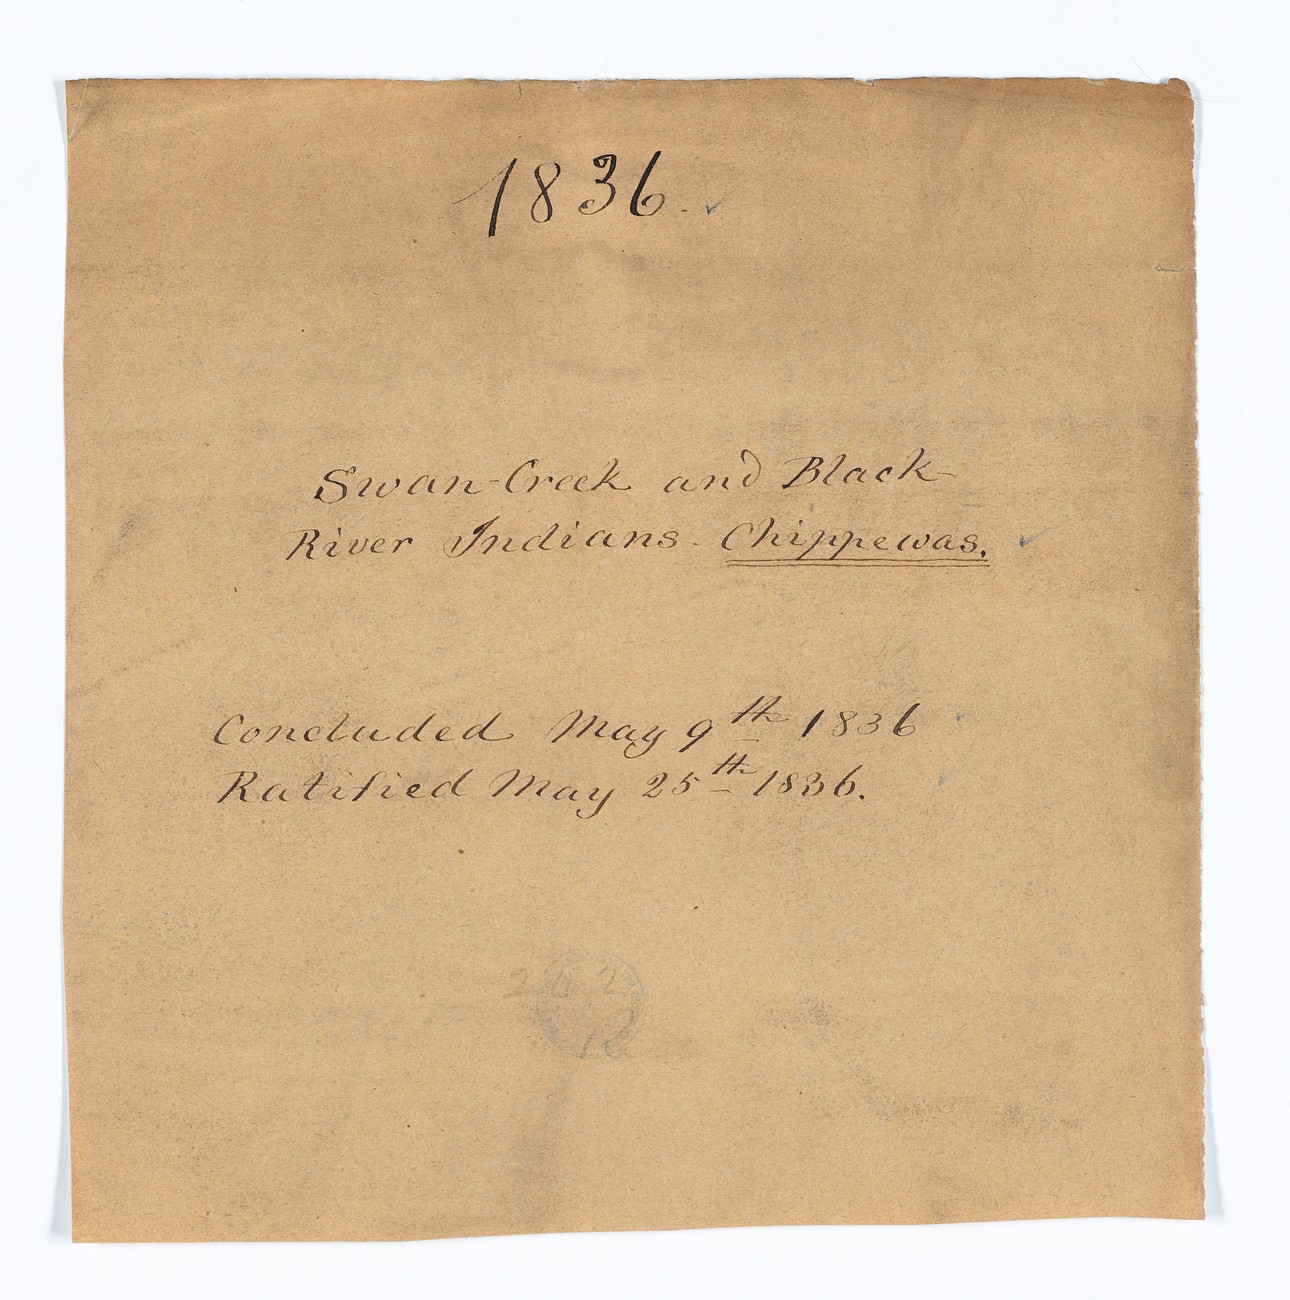 1836.
Swan-Creek and Black-
River Indians. Chippewas.
Concluded May 9th 1836
Ratified May 25th 1836.